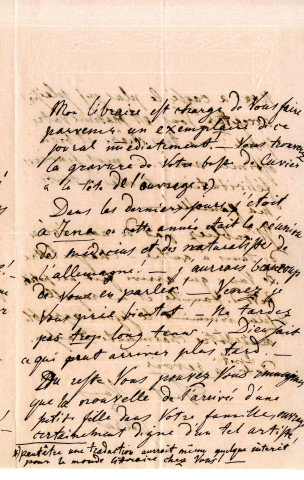 Mon libraire est chargé de Vous faire
parvenir un exemplaire de ce
immédiatement — Vous
la gravure de Votre buste de Cuvier
à la tête de l'ouvrage x)
Dans les derniers jours j'étoit
à Jena où cette année était la reunion
de médecins et des naturalistes de
l'allemagne — J'aurais beaucoup
de Vous en parler — Venez je
Vous prie bientot — Ne tardez
pas trop long tems — Dieu sait
ce qui peut arriver plus tard —
Du reste Vous pouvez Vous
que la nouvelle de l'arrivée d'une
petite fille dans Votre famille
certainement digne d'un tel artiste
x) peutêtre une traduction aurait mieux quelque interêt
pour le monde litteraire chez Vous!